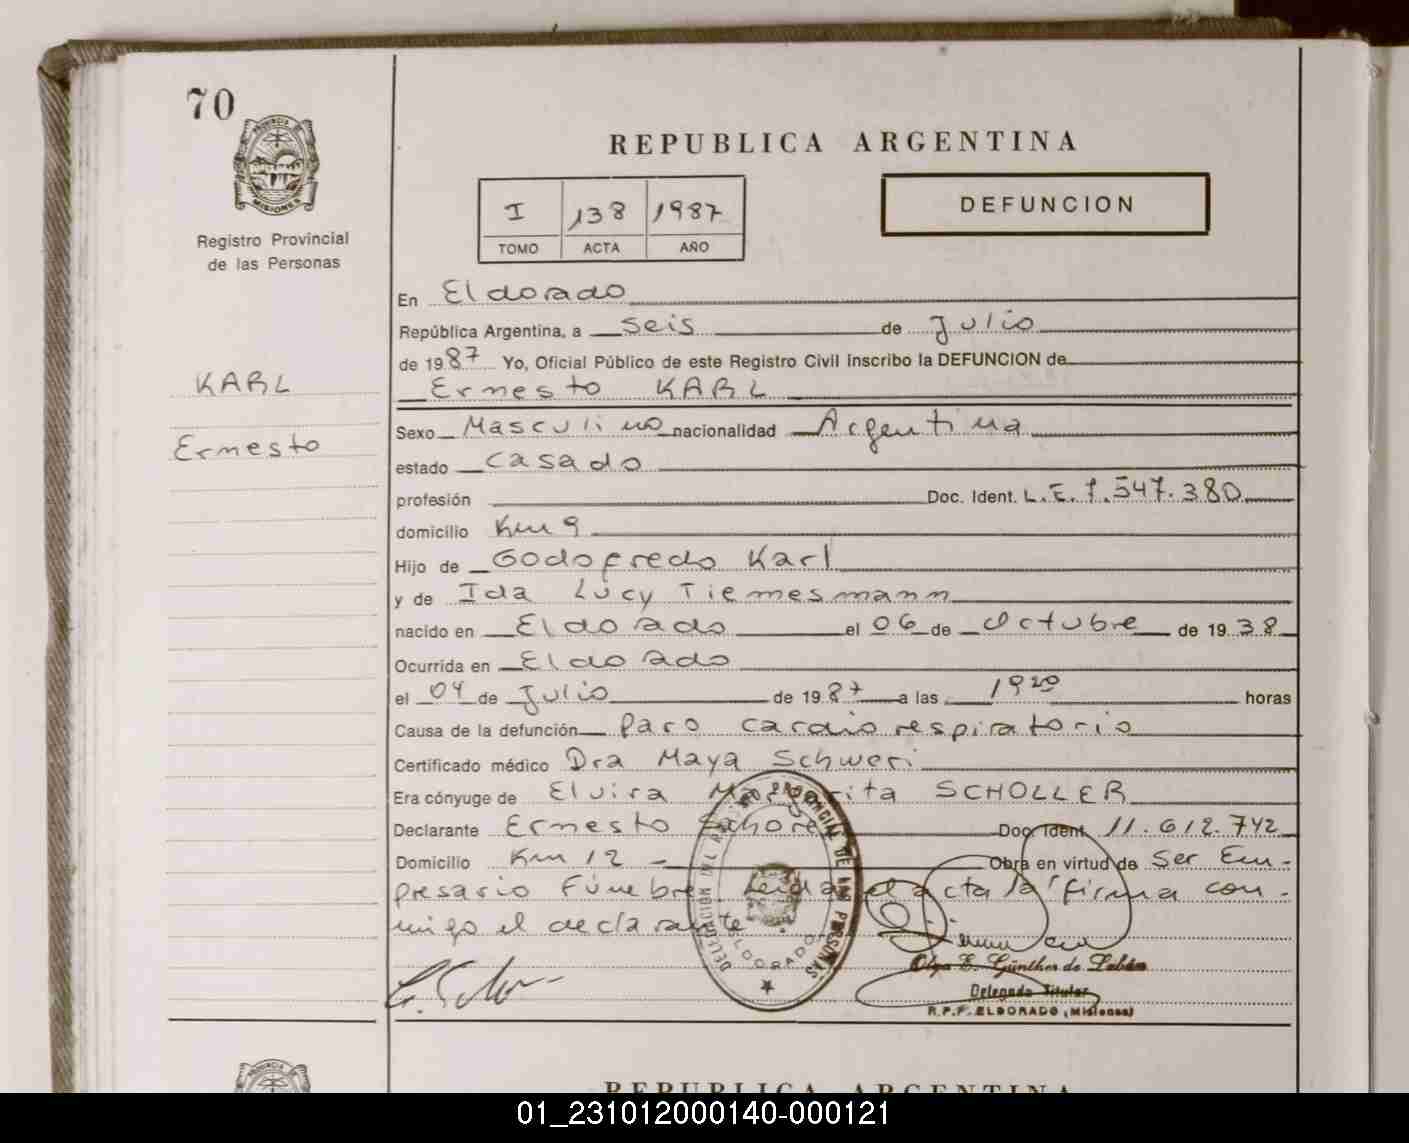 70
PROVINCIA DE
MISIONES
Registro Provincial
de las Personas
KARL
Ernesto
REPUBLICA ARGENTINA
I 138 1987
TOMO ACTA AÑO
DEFUNCION
En Eldorado
República Argentina, a seis de Julio
de 1987 Yo, Oficial Público de este Registro Civil inscribo la DEFUNCION de
Ernesto KARL
Sexo Masculino nacionalidad Argentina
estado casado
profesión Doc. Ident. L.E. 7.547.380
domicilio Km 9
Hijo de Godofredo Karl
y de Ida Lucy Tiemesmann
nacido en Eldorado el 06 de Octubre de 1938
Ocurrida en Eldorado
el 04 de Julio de 1987 a las 1920 horas
Causa de la defunción Paro cardiorespiratorio
Certificado médico Dra Maya Schweri
Era cónyuge de Elvira Margarita SCHOLLER
Declarante Ernesto Doc. Ident. 11.612.742
Domicilio Km 12 - Obra en virtud de Ser Em-
presario Fúnebre Leida el acta la firma con-
migo el declarante
DELEGACIÓN DEL REGISTRO PROVINCIAL DE LAS PERSONAS
ELDORADO
Olga E. Günther de Labán
Delegada Titular
R.P.P. ELDORADO (Misiones)
REPUBLICA ARGENTINA
01_231012000140-000121